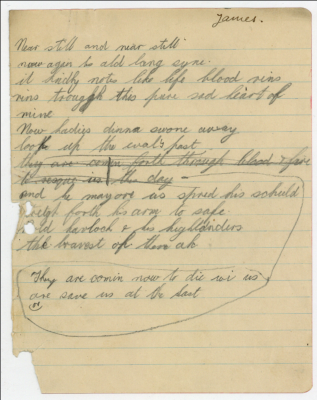 James.
Near still and near still
now agen to ald lang syne.
it hiedly notes like life blood rins
rins trough this pure sad heart of
mine
Now ladies dinna swone away
look up the wast's past
they are comen forth through blood & fire
to the day -
and he mayory as spired his schuld
forth his arm to safe.
ald havloch & his hylanders
the bravest of them ah
They are comin now to die wi us
are save us at the last